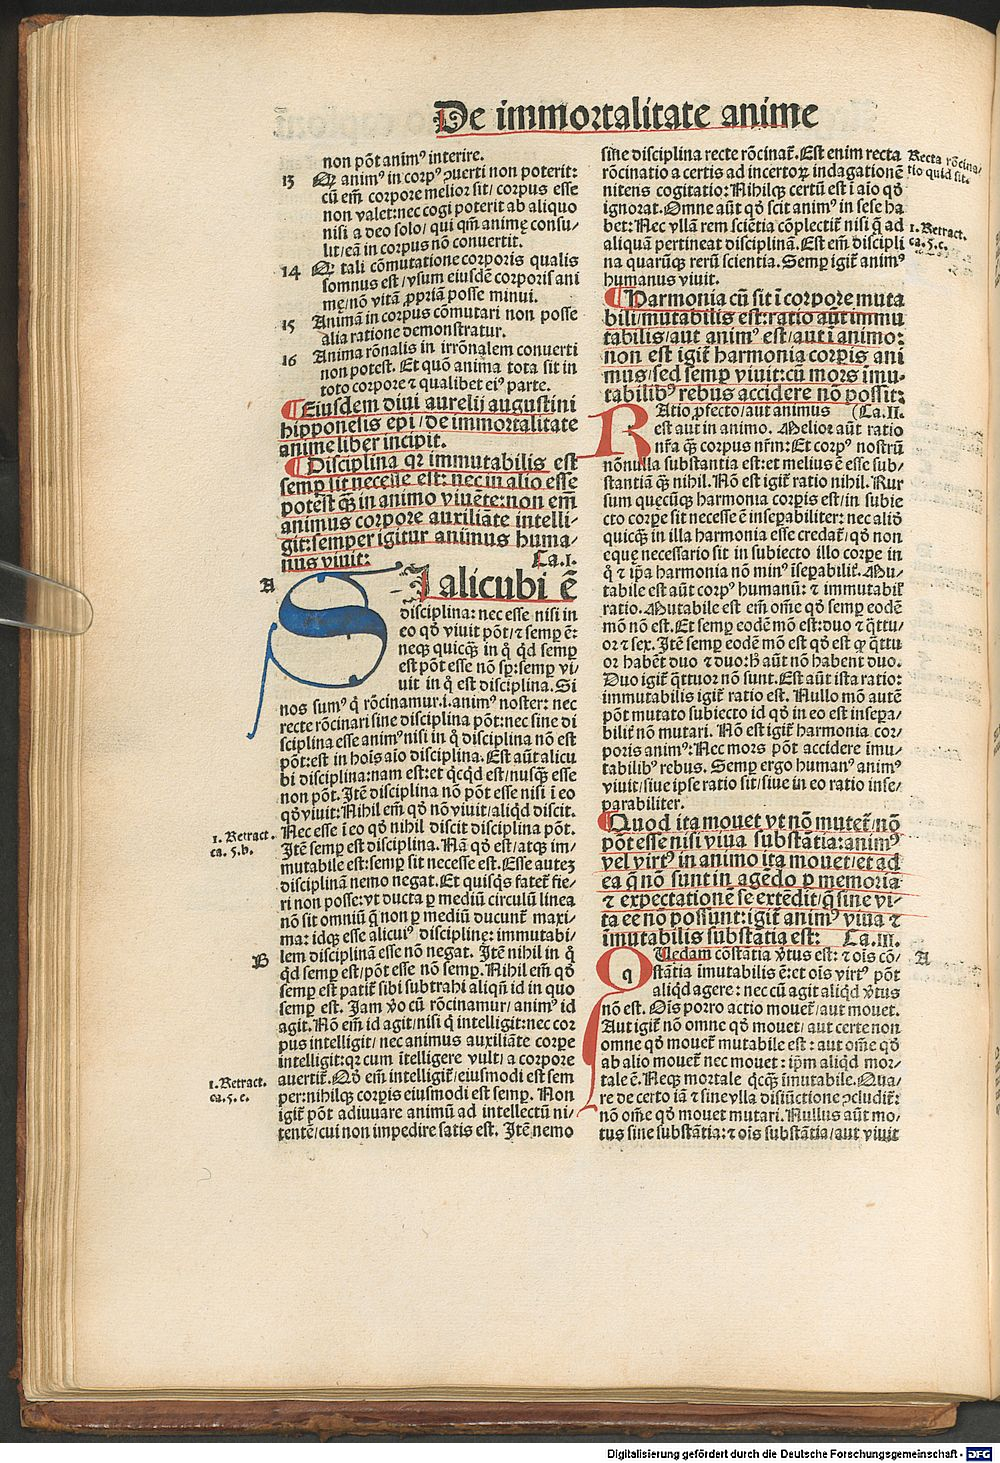 De immortalitate anime
non põt animꝰ interire.
13 Q animꝰ in corpꝰ ꝯuerti non poterit:
cũ em̃ corpore melior sit/ corpus esse
non valet: nec cogi poterit ab aliquo
nisi a deo solo/ qui qm̃ animę consu/
lit/ eã in corpus nõ conuertit.
14 Q tali cõmutatione corporis qualis
somnus est/ vsum eiusdẽ corporis ani
mę/ nõ vitã ꝓpriam posse minui.
15 Animã in corpus cõmutari non posse
alia ratione demonstratur.
16 Anima rõnalis in irrõnalem conuerti
non potest. Et quõ anima tota sit in
toto corpore ⁊ qualibet eiꝰ parte.
¶ Eiusdem diui aurelij augustini
hipponesis epi/ de immortalitate
anime liber incipit.
¶ Disciplina qꝛ immutabilis est
semꝑ sit necesse est: nec in alio esse
potest qᷓꝫ in animo viuẽte: non em̃
animus corpore auxiliãte intelli-
git: semper igitur animus huma/
nus viuit: Ca. I.
A
SI alicubi ẽ
disciplina: nec esse nisi in
eo qď viuit põt/ ⁊ semꝑ ẽ:
neqꝫ quicqᷓꝫ in q̊ qd semꝑ
est põt esse nõ sꝑ: semꝑ vi/
uit in q̊ est disciplina. Si
nos sumꝰ q̇ rõcinamur .i. animꝰ noster: nec
recte rõcinari sine disciplina põt: nec sine di
sciplina esse animꝰ nisi in q̊ disciplina nõ est
põt: est in hoĩs aĩo disciplina. Est aũt alicu
bi disciplina: nam est: et qͥcqͥd est/ nusqᷓꝫ esse
non põt. Itẽ disciplina nõ põt esse nisi ĩ eo
qď viuit: Nihil em̃ qď nõ viuit/ aliqͥd discit.
1. Retract.
ca. 5. b.
Nec esse ĩ eo qď nihil discit disciplina põt.
Itẽ semꝑ est disciplina. Nã qď est/ atqꝫ im/
mutabile est: semꝑ sit necesse est. Esse auteꝫ
disciplinã nemo negat. Et quisqͥs fatet̃ fie/
ri non posse: vt ducta ꝑ mediũ circulũ linea
nõ sit omniũ q̃ non ꝑ mediũ ducunt̃ maxi/
ma: idqꝫ esse alicuiꝰ discipline: immutabi/
B
lem disciplinã esse nõ negat. Itẽ nihil in q̊
qͥd semꝑ est/ põt esse nõ semꝑ. Nihil em̃ qď
semꝑ est patit̃ sibi subtrahi aliqñ id in quo
semꝑ est. Jam v̊o cũ rõcinamur/ animꝰ id
agit. Nõ em̃ id agit/ nisi q̇ intelligit: nec cor
pus intelligit/ nec animus auxiliãte corꝑe
intelligit: qꝛ cum ĩtelligere vult/ a corpore
1. Retract.
ca. 5. c.
auertit̃. Qď em̃ intelligit̃/ eiusmodi est sem
per: nihilqꝫ corꝑis eiusmodi est semꝑ. Non
igit̃ põt adiuuare animũ ad intellectũ ni-
tentẽ/ cui non impedire satis est. Itẽ nemo
sine disciplina recte rõcinat̃. Est enim recta
rõcinatio a certis ad incertoꝝ indagationẽ
nitens cogitatio: Nihilqꝫ certũ est ĩ aĩo qď
ignorat. Omne aũt qď scit animꝰ in sese ha
bet: Nec vllã rem sciẽtia cõplectit̃ nisi q̃ ad
aliquam pertineat disciplinã. Est em̃ discipli
na quarũqꝫ rerũ scientia. Semꝑ igit̃ animꝰ
humanus viuit.
Recta rõcina/
tio quid sit.
1. Retract.
ca. 5. c.
¶ Harmonia cũ sit ĩ corpore muta
bili/ mutabilis est: ratio aũt immu
tabilis/ aut animꝰ est/ aut ĩ animo:
non est igit̃ harmonia corꝑis ani
mus/ sed semꝑ viuit: cũ mors ĩmu-
tabilibꝰ rebus accidere nõ possit:
RAtio ꝓfecto/ aut animus (Ca. II.
est aut in animo. Melior aũt ratio
nr̃a qᷓꝫ corpus nr̃m: Et corpꝰ nostrũ
nõnulla substantia est: et melius ẽ esse sub/
stantiã qᷓꝫ nihil. Nõ est igit̃ ratio nihil. Rur
sum quęcũqꝫ harmonia corꝑis est/ in subie
cto corꝑe sit necesse ẽ inseꝑabiliter: nec aliď
quicqᷓꝫ in illa harmonia esse credat̃/ qď non
eque necessario sit in subiecto illo corꝑe in
q̊ ⁊ ip̃a harmonia nõ minꝰ ĩseꝑabilit̃. Mu/
tabile est aũt corpꝰ humanũ: ⁊ immutabil̃
ratio. Mutabile est em̃ om̃e qď semꝑ eodẽ
mõ nõ est. Et semꝑ eodẽ mõ est: duo ⁊ q̃ttu/
or ⁊ sex. Itẽ semꝑ eodẽ mõ est qď est ꝙ q̃ttu
or habẽt duo ⁊ duo: hͦ aũt nõ habent duo.
Duo igit̃ q̃ttuor nõ sunt. Est aũt ista ratio:
immutabilis igit̃ ratio est. Nullo mõ autẽ
põt mutato subiecto id qď in eo est inseꝑa/
bilit̃ nõ mutari. Nõ est igit̃ harmonia cor/
poris animꝰ: Nec mors põt accidere ĩmu/
tabilibꝰ rebus. Semꝑ ergo humanꝰ animꝰ
viuit/ siue ipse ratio sit/ siue in eo ratio inse/
parabiliter.
¶ Quod ita mouet vt nõ mutet̃/ nõ
põt esse nisi viua substãtia: animꝰ
vel virtꝰ in animo ita mouet/ et ad
ea q̃ nõ sunt in agẽdo ꝑ memoria
⁊ expectationẽ se extẽdit/ q̃ sine vi-
ta eẽ nõ possunt: igit̃ animꝰ viua ⁊
immutabilis substãtia est: Ca. III.
QUedam cõstãtia v̓tus est: ⁊ oĩs cõ/
A
stãtia ĩmutabilis ẽ: et oĩs virtꝰ põt
aliqͥd agere: nec cũ agit aliqͥd v̓tus
nõ est. Oĩs porro actio mouet̃/ aut mouet.
Aut igit̃ nõ omne qď mouet/ aut certe non
omne qď mouet̃ mutabile est: aut om̃e qď
ab alio mouet̃ nec mouet: ip̃m aliqͥd mor/
tale ẽ. Neqꝫ mortale qͥcqᷓꝫ ĩmutabile. Qua/
re de certo iã ⁊ sine vlla disiũctione ꝯcludit̃:
nõ om̃e qď mouet mutari. Nullus aũt mo/
tus sine substãtia: ⁊ oĩs substãtia/ aut viuit
Digitalisierung gefördert durch die Deutsche Forschungsgemeinschaft - DFG